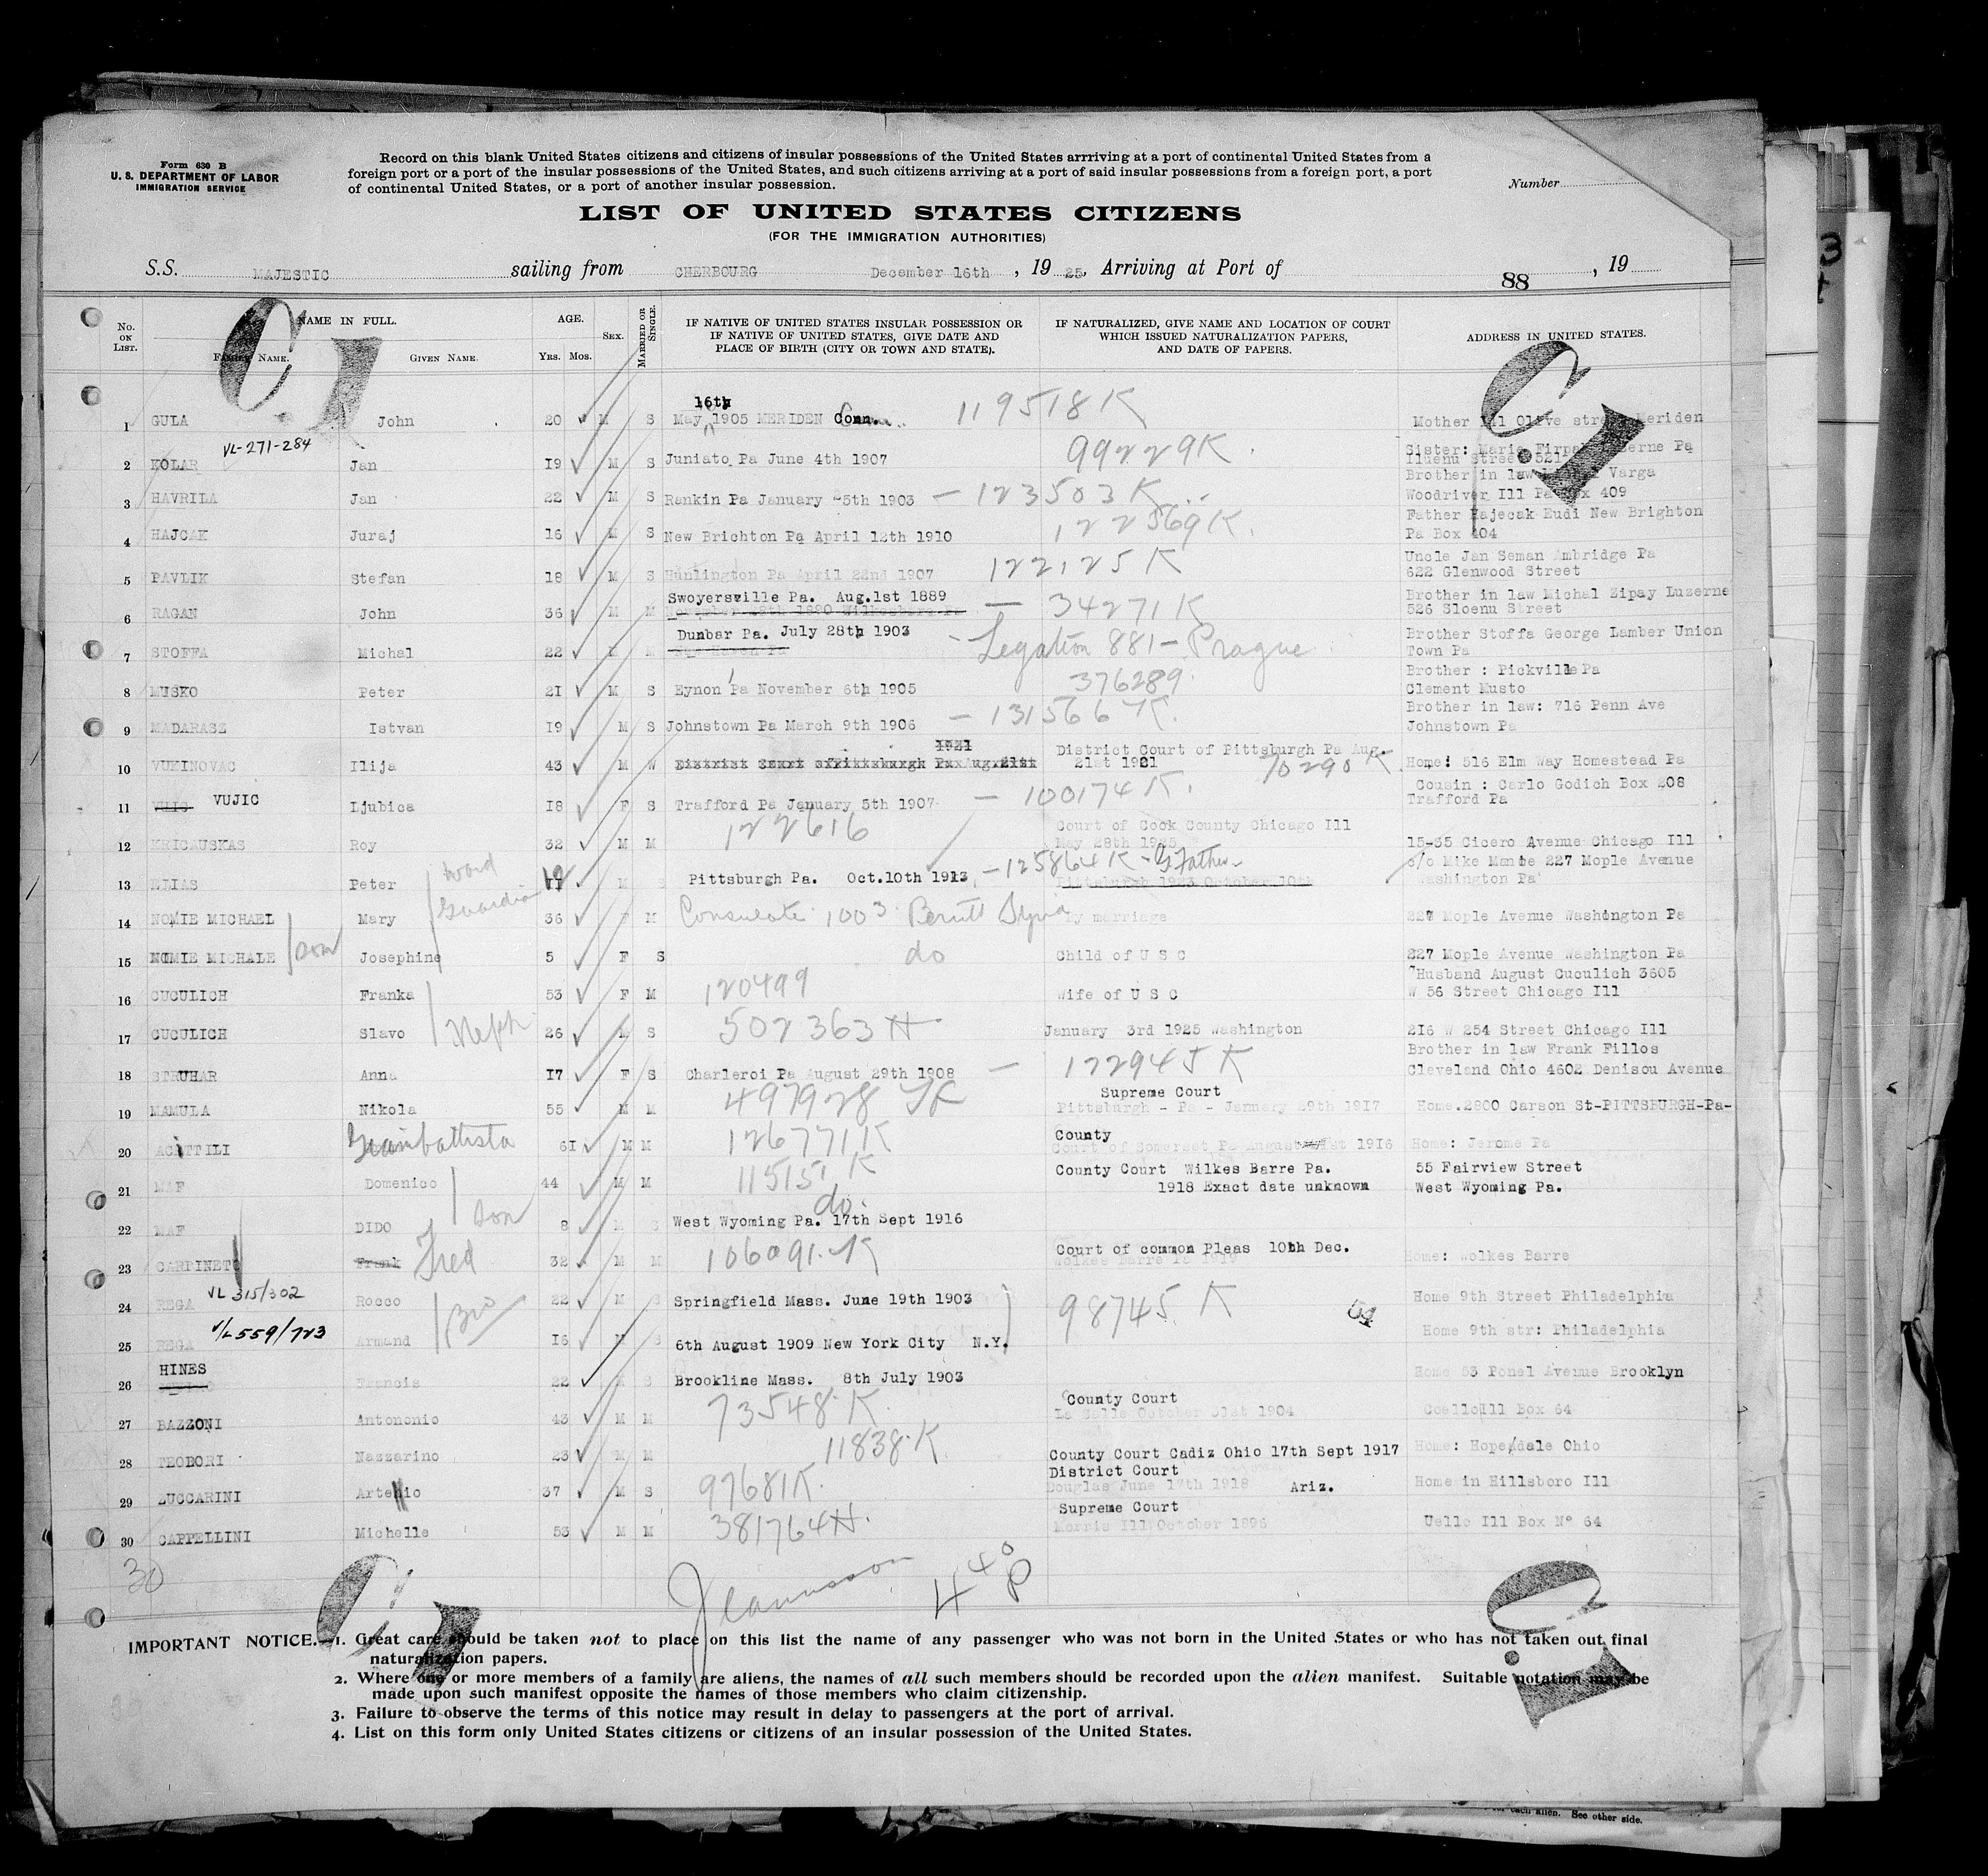 Form 630 B
U. S. DEPARTMENT OF LABOR
IMMIGRATION SERVICE
Record on this blank United States citizens and citizens of insular possessions of the United States arrriving at a port of continental United States from a
foreign port or a port of the insular possessions of the United States, and such citizens arriving at a port of said insular possessions from a foreign port, a port
of continental United States, or a port of another insular possession.
Number
LIST OF UNITED STATES CITIZENS
(FOR THE IMMIGRATION AUTHORITIES)
S.S. MAJESTIC sailing from CHERBOURG December 16th , 19 25, Arriving at Port of 88 , 19
No. ON LIST. NAME IN FULL. FAMILY NAME. GIVEN NAME. AGE. Yrs. Mos. SEX. MARRIED OR SINGLE. IF NATIVE OF UNITED STATES INSULAR POSSESSION OR IF NATIVE OF UNITED STATES, GIVE DATE AND PLACE OF BIRTH (CITY OR TOWN AND STATE). IF NATURALIZED, GIVE NAME AND LOCATION OF COURT WHICH ISSUED NATURALIZATION PAPERS, AND DATE OF PAPERS. ADDRESS IN UNITED STATES.
16th
1 GULA John 20 M S May 1905 MERIDEN Conn. 119518 K Mother Olive Meriden
VL-271-284
2 KOLAR Jan 19 M S Juniato Pa June 4th 1907 99229K. Sister: Pa
Brother in law Varga
3 HAVRILA Jan 22 M S Rankin Pa January 5th 1903 — 123503 K Woodriver Ill 409
Father Hajecak Eudi New Brighton
4 HAJCAK Juraj 16 M S New Brichton Pa April 12th 1910 122569K. Pa Box 404
Uncle Jan Seman Ambridge Pa
5 PAVLIK Stefan 18 M S Hunlington Pa April 22nd 1907 122125 K 622 Glenwood Street
Swoyersville Pa. Aug.1st 1889 Brother in law Michal Zipay Luzerne
6 RAGAN John 36 M M — 34271 K 526 Sloenu Street
Dunbar Pa. July 28th 1903 Brother Stoffa George Lamber Union
7 STOFFA Michal 22 M M Legation 881 - Prague Town Pa
Brother : Pickville Pa
8 MUSKO Peter 21 M S Eynon Pa November 6th 1905 376289. Clement Musto
Brother in law: 716 Penn Ave
9 MADARASZ Istvan 19 M S Johnstown Pa March 9th 1906 — 131566 K. Johnstown Pa
1921 District Court of Pittsburgh Pa Aug.
10 VUKINOVAC Ilija 43 M W 21st 1921 70290 K Home: 516 Elm Way Homestead Pa
Cousin : Carlo Godich Box 208
11 VUJIC Ljubica 18 F S Trafford Pa January 5th 1907 — 100174 K. Trafford Pa
Court of Cook County Chicago Ill
12 KRICAUSKAS Roy 32 M M 122616 May 28th 1925 15-35 Cicero Avenue Chicago Ill
125864 K - G Father c/o Mike 227 Mople Avenue
13 ELIAS Peter 12 M S Pittsburgh Pa. Oct.10th 1913 Pittsburgh 1923 October 10th Washington Pa
Ward
Guardian
14 NOMIE MICHAEL Mary 36 F M Consulate 1003 Beruit Syria By marriage 227 Mople Avenue Washington Pa
15 NOMIE MICHALE Josephine 5 F S do Child of U S C 227 Mople Avenue Washington Pa
Husband August Cuculich 3605
16 CUCULICH Franka 53 F M 120499 Wife of U S C W 56 Street Chicago Ill
17 CUCULICH Slavo 26 M S 502363 H January 3rd 1925 Washington 216 W 254 Street Chicago Ill
Neph.
Brother in law Frank Fillos
18 STRUHAR Anna 17 F S Charleroi Pa August 29th 1908 — 122945 K Cleveland Ohio 4602 Denisou Avenue
Supreme Court
19 MAMULA Nikola 55 M M 497928 Pittsburgh - Pa - January 29th 1917 Home.2800 Carson St-PITTSBURGH-Pa-
County
20 ACITTILI Giambattista 61 M M 126771 K Court of Somerset Pa August 1st 1916 Home: Jerome Pa
County Court Wilkes Barre Pa. 55 Fairview Street
21 MAF Domenico 44 M M 115151 K 1918 Exact date unknown West Wyoming Pa.
do.
22 MAF DIDO son 8 M S West Wyoming Pa. 17th Sept 1916
Court of common Pleas 10th Dec.
23 CARPINETO Frank Fred 32 M M 106091 K Wolkes Barre Pa 1919 Home: Wolkes Barre
VL 315/302
24 REGA Rocco 22 M S Springfield Mass. June 19th 1903 98745 K Home 9th Street Philadelphia
V/L 559/723
25 REGA Armand Bro 16 M S 6th August 1909 New York City N.Y. Home 9th str: Philadelphia
HINES
26 Francis 22 M S Brookline Mass. 8th July 1903 Home 53 Ponel Avenue Brooklyn
County Court
27 BAZZONI Antononio 43 M M 73548 K. La Salle October 31st 1904 Coello Ill Box 64
28 TEODORI Nazzarino 23 M M 11838 K. County Court Cadiz Ohio 17th Sept 1917 Home: Hopedale Ohio
District Court
29 ZUCCARINI Artenio 37 M S 97681K. Douglas June 17th 1918 Ariz. Home in Hillsboro Ill
Supreme Court
30 CAPPELLINI Michelle 53 M M 381764 H. Morris Ill October 1896 Uello Ill Box N° 64
30
4 40 P
IMPORTANT NOTICE.—1. Great care should be taken not to place on this list the name of any passenger who was not born in the United States or who has not taken out final
naturalization papers.
2. Where one or more members of a family are aliens, the names of all such members should be recorded upon the alien manifest. Suitable notation may be
made upon such manifest opposite the names of those members who claim citizenship.
3. Failure to observe the terms of this notice may result in delay to passengers at the port of arrival.
4. List on this form only United States citizens or citizens of an insular possession of the United States.
for each alien. See other side.